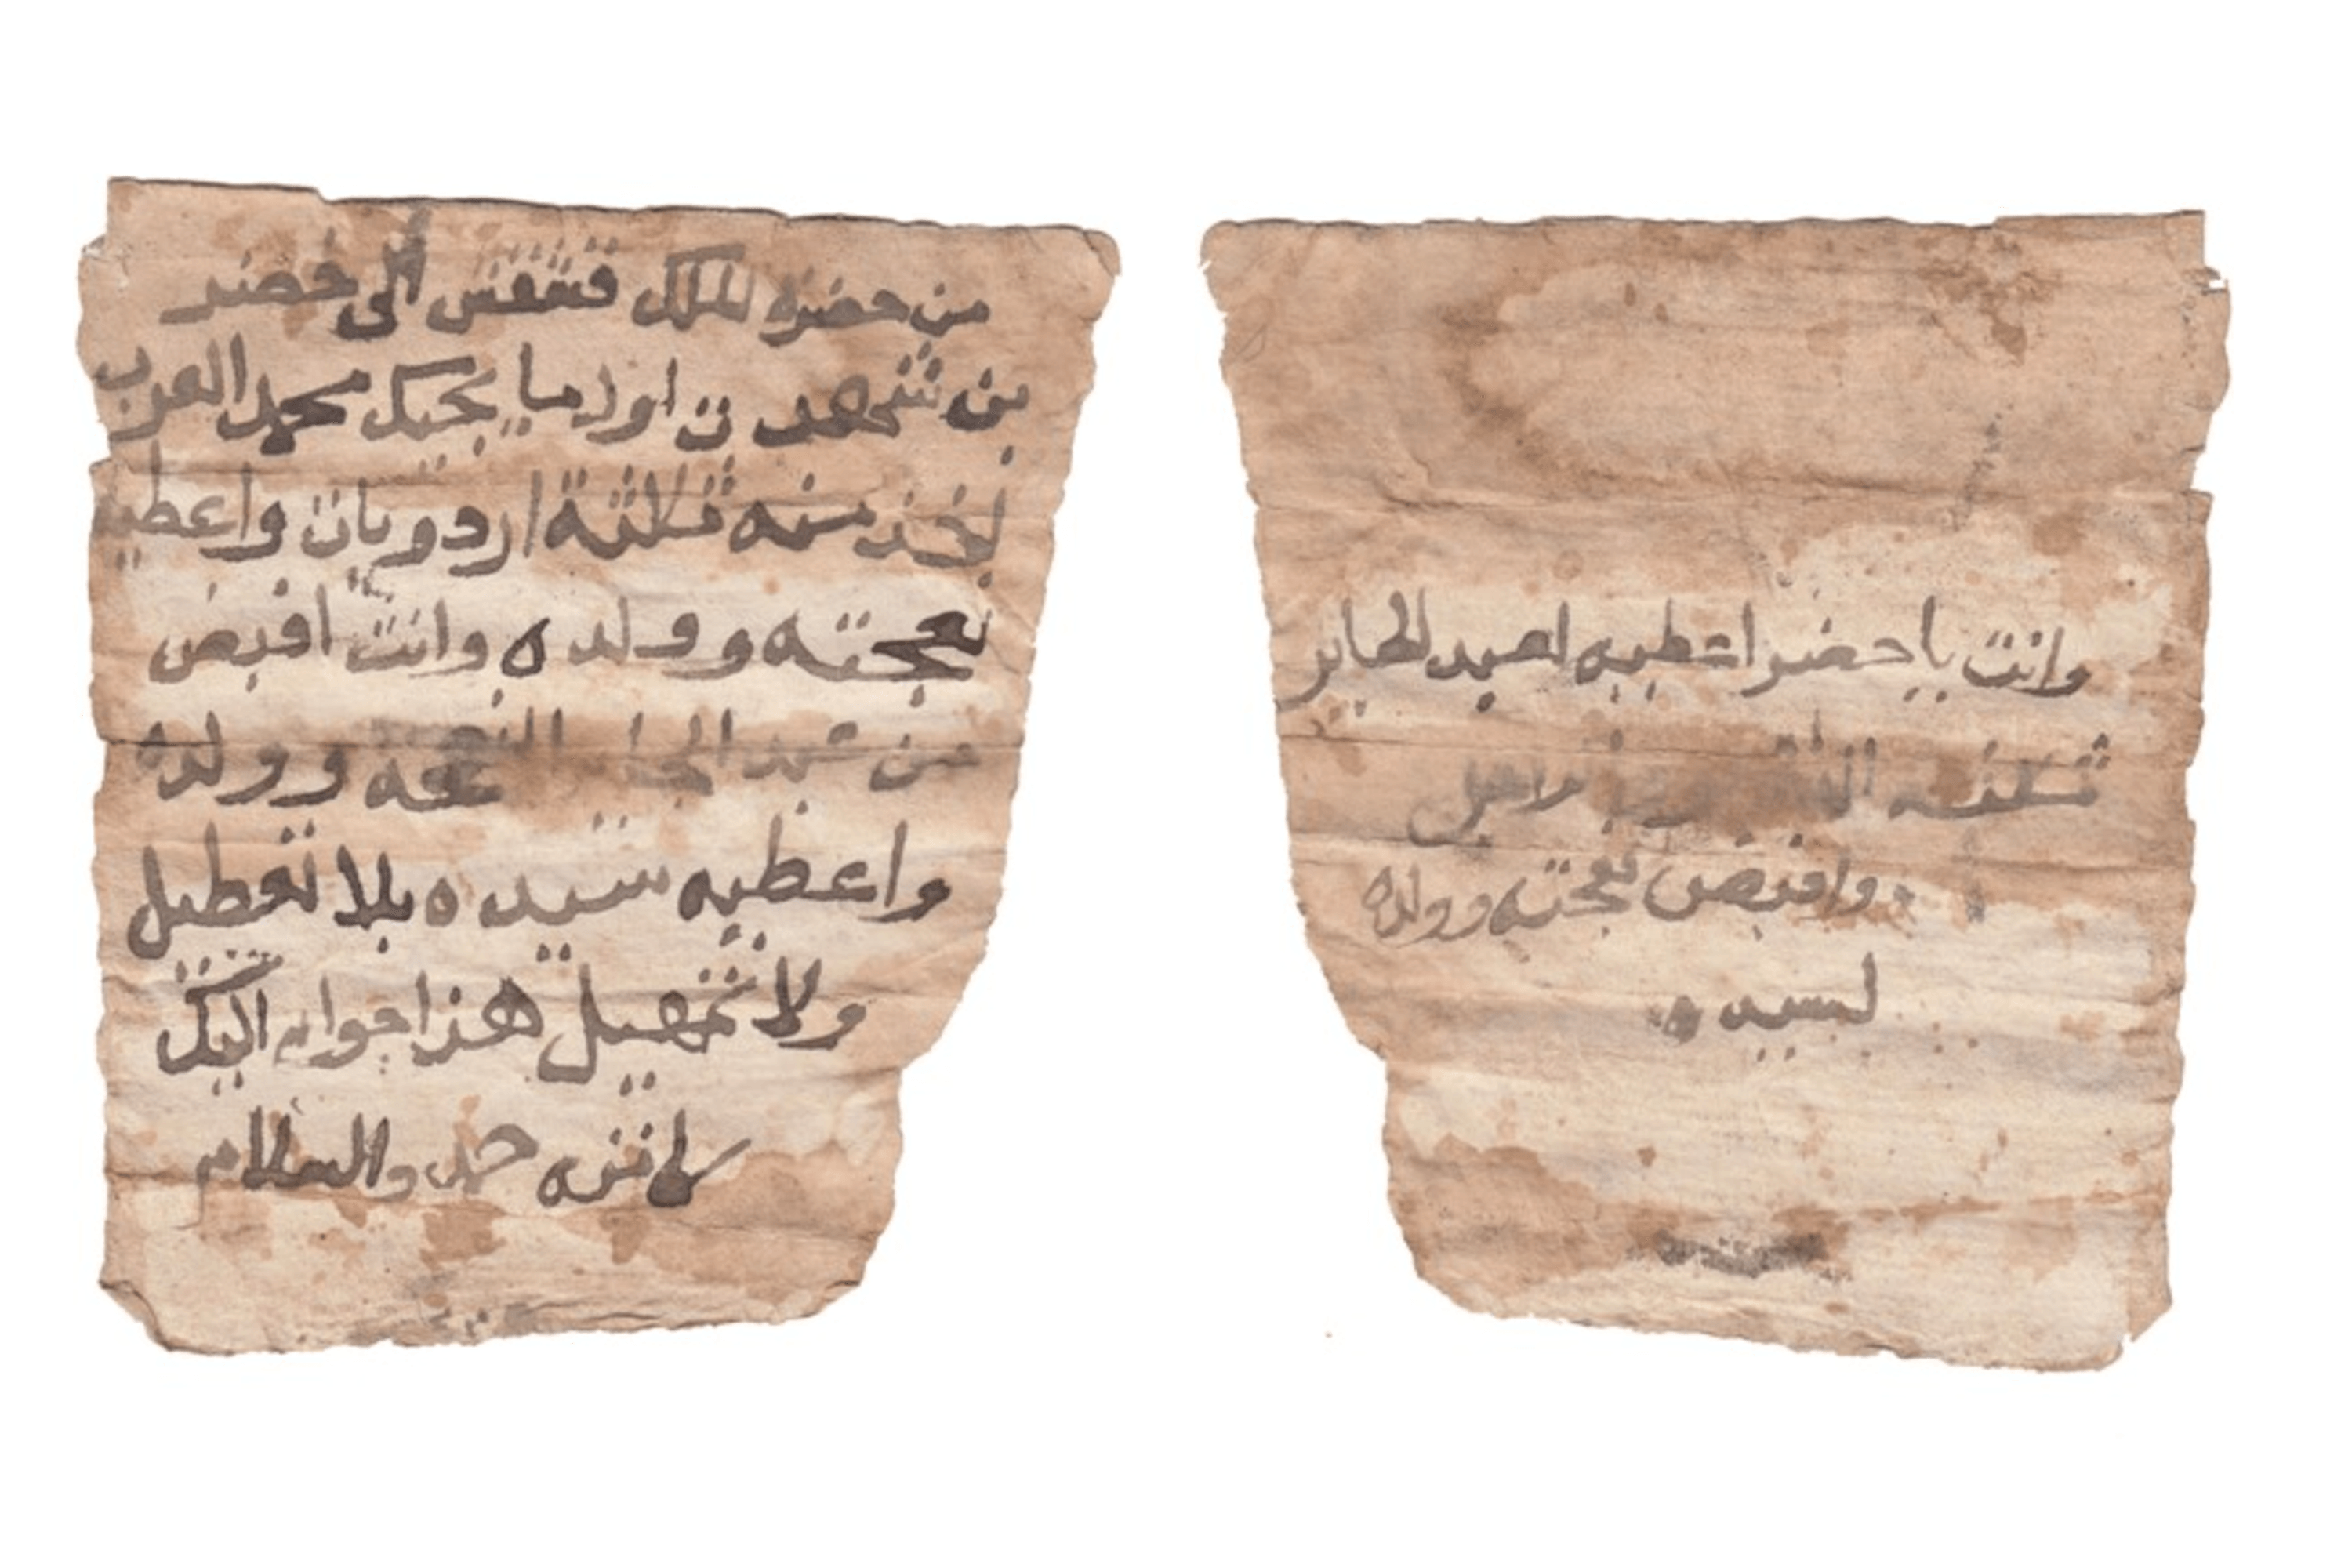 من حضرة الملك قشقش الى خضر
بن شهد ن اول ما يجيك محمد العرب
لخذ منه ثلاثة اردويات واعطيه
نعجته وولده وانت اقبض
من عبد الجابر النعجه وولده
واعطيه سيده بلا تعطيل
ولا تمهيل هذا جواب اليك
كاتبه حمد والسلام
وانت يا حضر اعطيه لعبد الجابر
واقبض نعجته وولده
لسيده